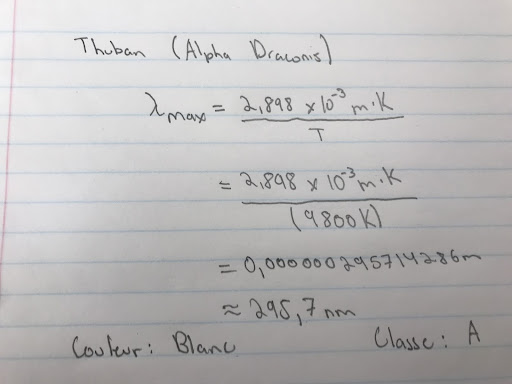 Thuban (Alpha Draconis)
λmax = 2,898 × 10⁻³ m·K
T
= 2,898 × 10⁻³ m·K
(9800K)
= 0,000000295714286m
≈ 295,7 nm
Couleur: Blanc Classe: A